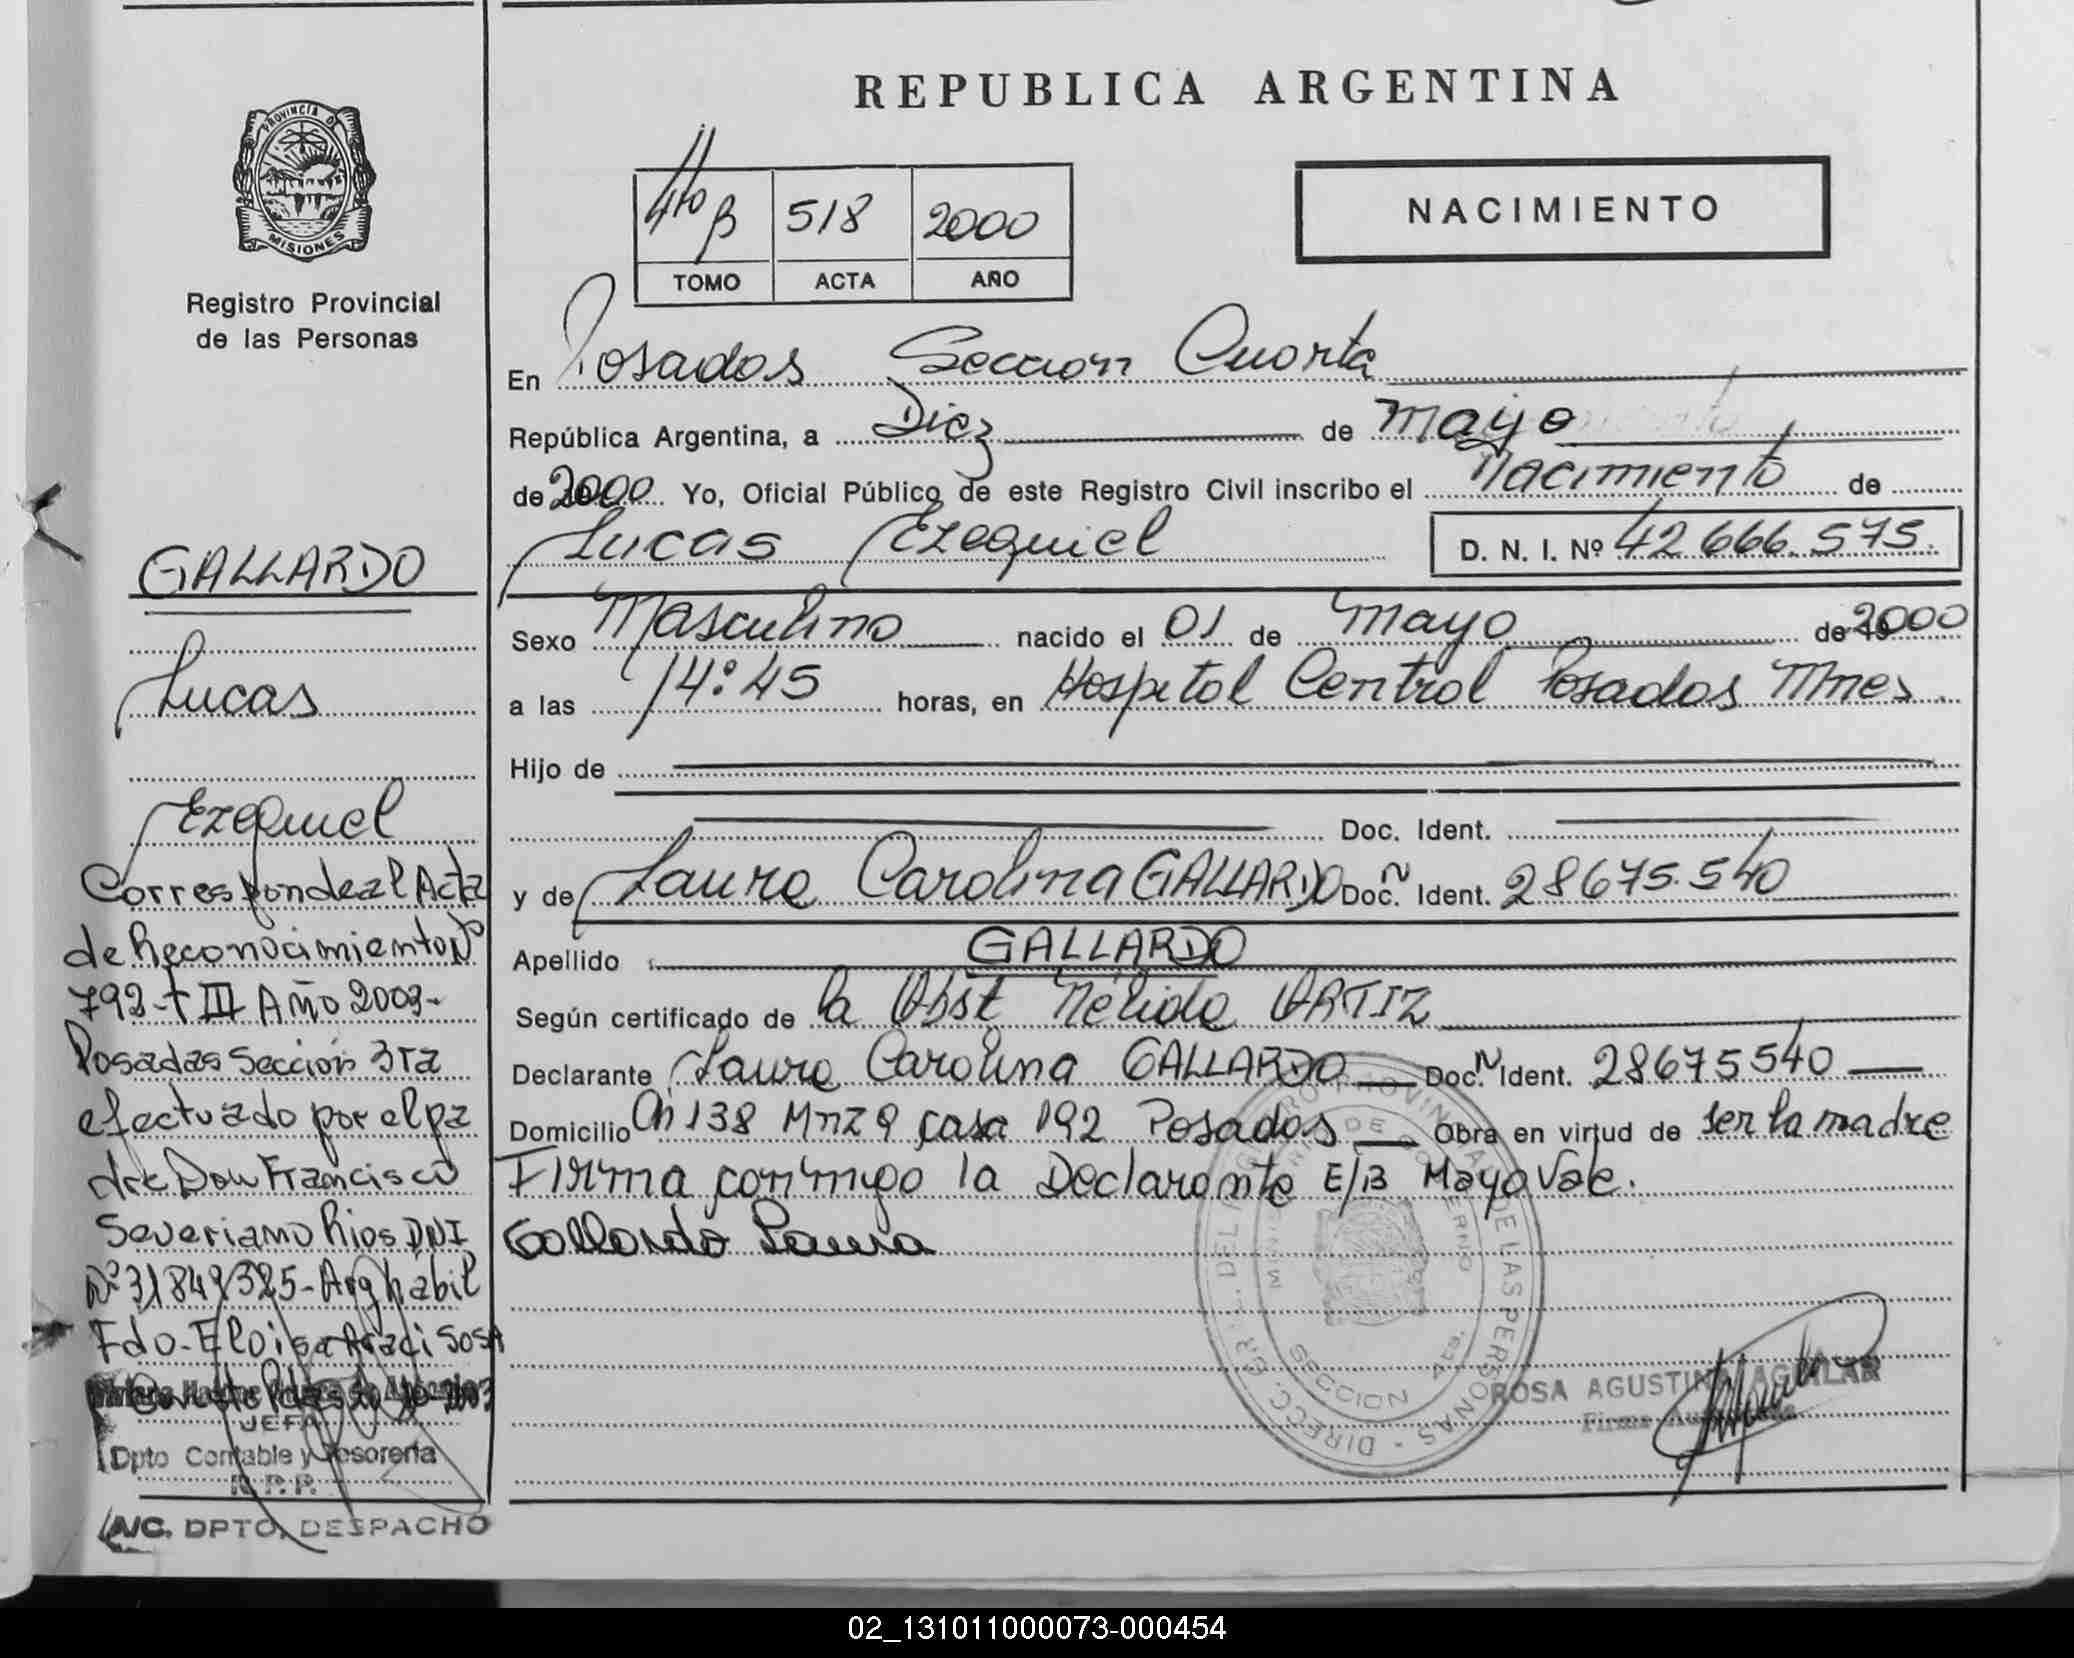 REPUBLICA ARGENTINA
PROVINCIA DE
MISIONES
Registro Provincial
de las Personas
518 2000
TOMO ACTA AÑO
NACIMIENTO
En Posadas Seccion Cuarta
República Argentina, a Diez de mayo
de 2000 Yo, Oficial Público de este Registro Civil inscribo el Nacimiento de
Lucas Ezequiel D. N. I. Nº 42.666.575.
Sexo Masculino nacido el 01 de Mayo de 2000
a las 14:45 horas, en Hospital Central Posadas Mnes.
Hijo de
Doc. Ident.
y de Laura Carolina GALLARDO Doc. N Ident. 28675.540
Apellido GALLARDO
Según certificado de la Obst Nélida ORTIZ
Declarante Laura Carolina GALLARDO Doc. N Ident. 28675540
Domicilio Ch 138 Mnz 9 casa 192 Posadas Obra en virtud de ser la madre
Firma conmigo la Declarante E/B Mayo Vale.
Gallardo Laura
ROSA AGUSTINA AGUILAR
Firma Autorizada
DIRECC. GR. DEL REGISTRO PROVINCIAL DE LAS PERSONAS
SECCION 4ta.
GALLARDO
Lucas
Ezequiel
Corresponde al Acta
de Reconocimiento Nº
792-t III Año 2003-
Posadas Sección 3ra
efectuado por el pa
dre Don Francisco
Severiano Rios DNI
Nº 31849325-Arg habil
Fdo-Eloisa Araci SOSA
JEFA
Dpto Contable y Tesoreria
R.P.P.
A/C. DPTO. DESPACHO
02_131011000073-000454